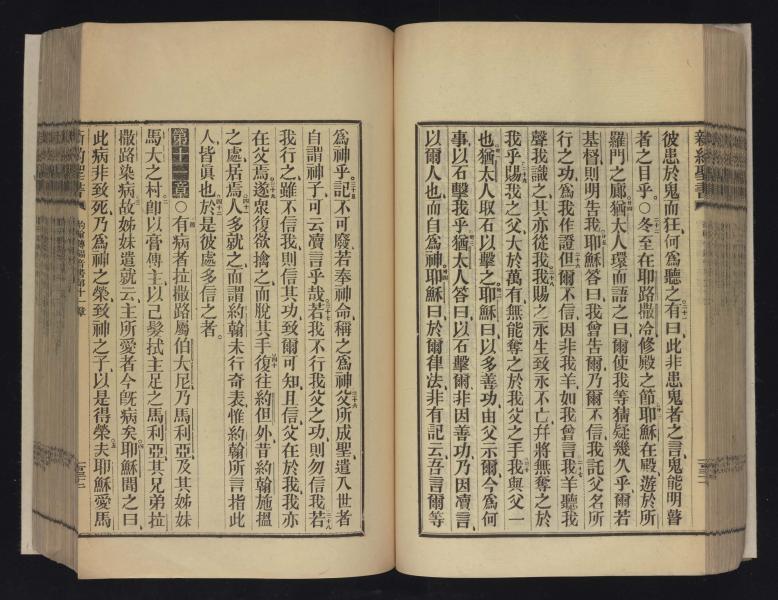 新約聖書
彼患於鬼而狂何爲聽之有曰此非患鬼者之言鬼能明瞽
者之目乎○冬至在耶路撒冷修殿之節耶穌在殿遊於所
羅門之廊猶太人環而語之曰爾使我等猜疑幾久乎爾若
基督則明告我耶穌答曰我曾告爾乃爾不信我託父名所
行之功爲我作證但爾不信因非我羊如我曾言我羊聽我
聲我識之其亦從我我賜之永生致永不亡幷將無奪之於
我手賜我之父大於萬有無能奪之於我父之手我與父一
也猶太人取石以擊之耶穌曰以多善功由父示爾今爲何
事以石擊我乎猶太人答曰以石擊爾非因善功乃因凟言
以爾人也而自爲神耶穌曰於爾律法非有記云吾言爾等
爲神乎記不可廢若奉神命稱之爲神父所成聖遣入世者
自謂神子可云凟言乎哉若我不行我父之功則勿信我若
我行之雖不信我則信其功致爾可知且信父在於我我亦
在父焉遂衆復欲擒之而脫其手復往約但外昔約翰施搵
之處居焉人多就之而謂約翰未行奇表惟約翰所言指此
人皆眞也於是彼處多信之者
第十一章○有病者拉撒路屬伯大尼乃馬利亞及其姊妹
馬大之村卽以膏傅主以己髮拭主足之馬利亞其兄弟拉
撒路染病故姊妹遣就云主所愛者今旣病矣耶穌聞之曰
此病非致死乃爲神之榮致神之子以是得榮夫耶穌愛馬
新約聖書